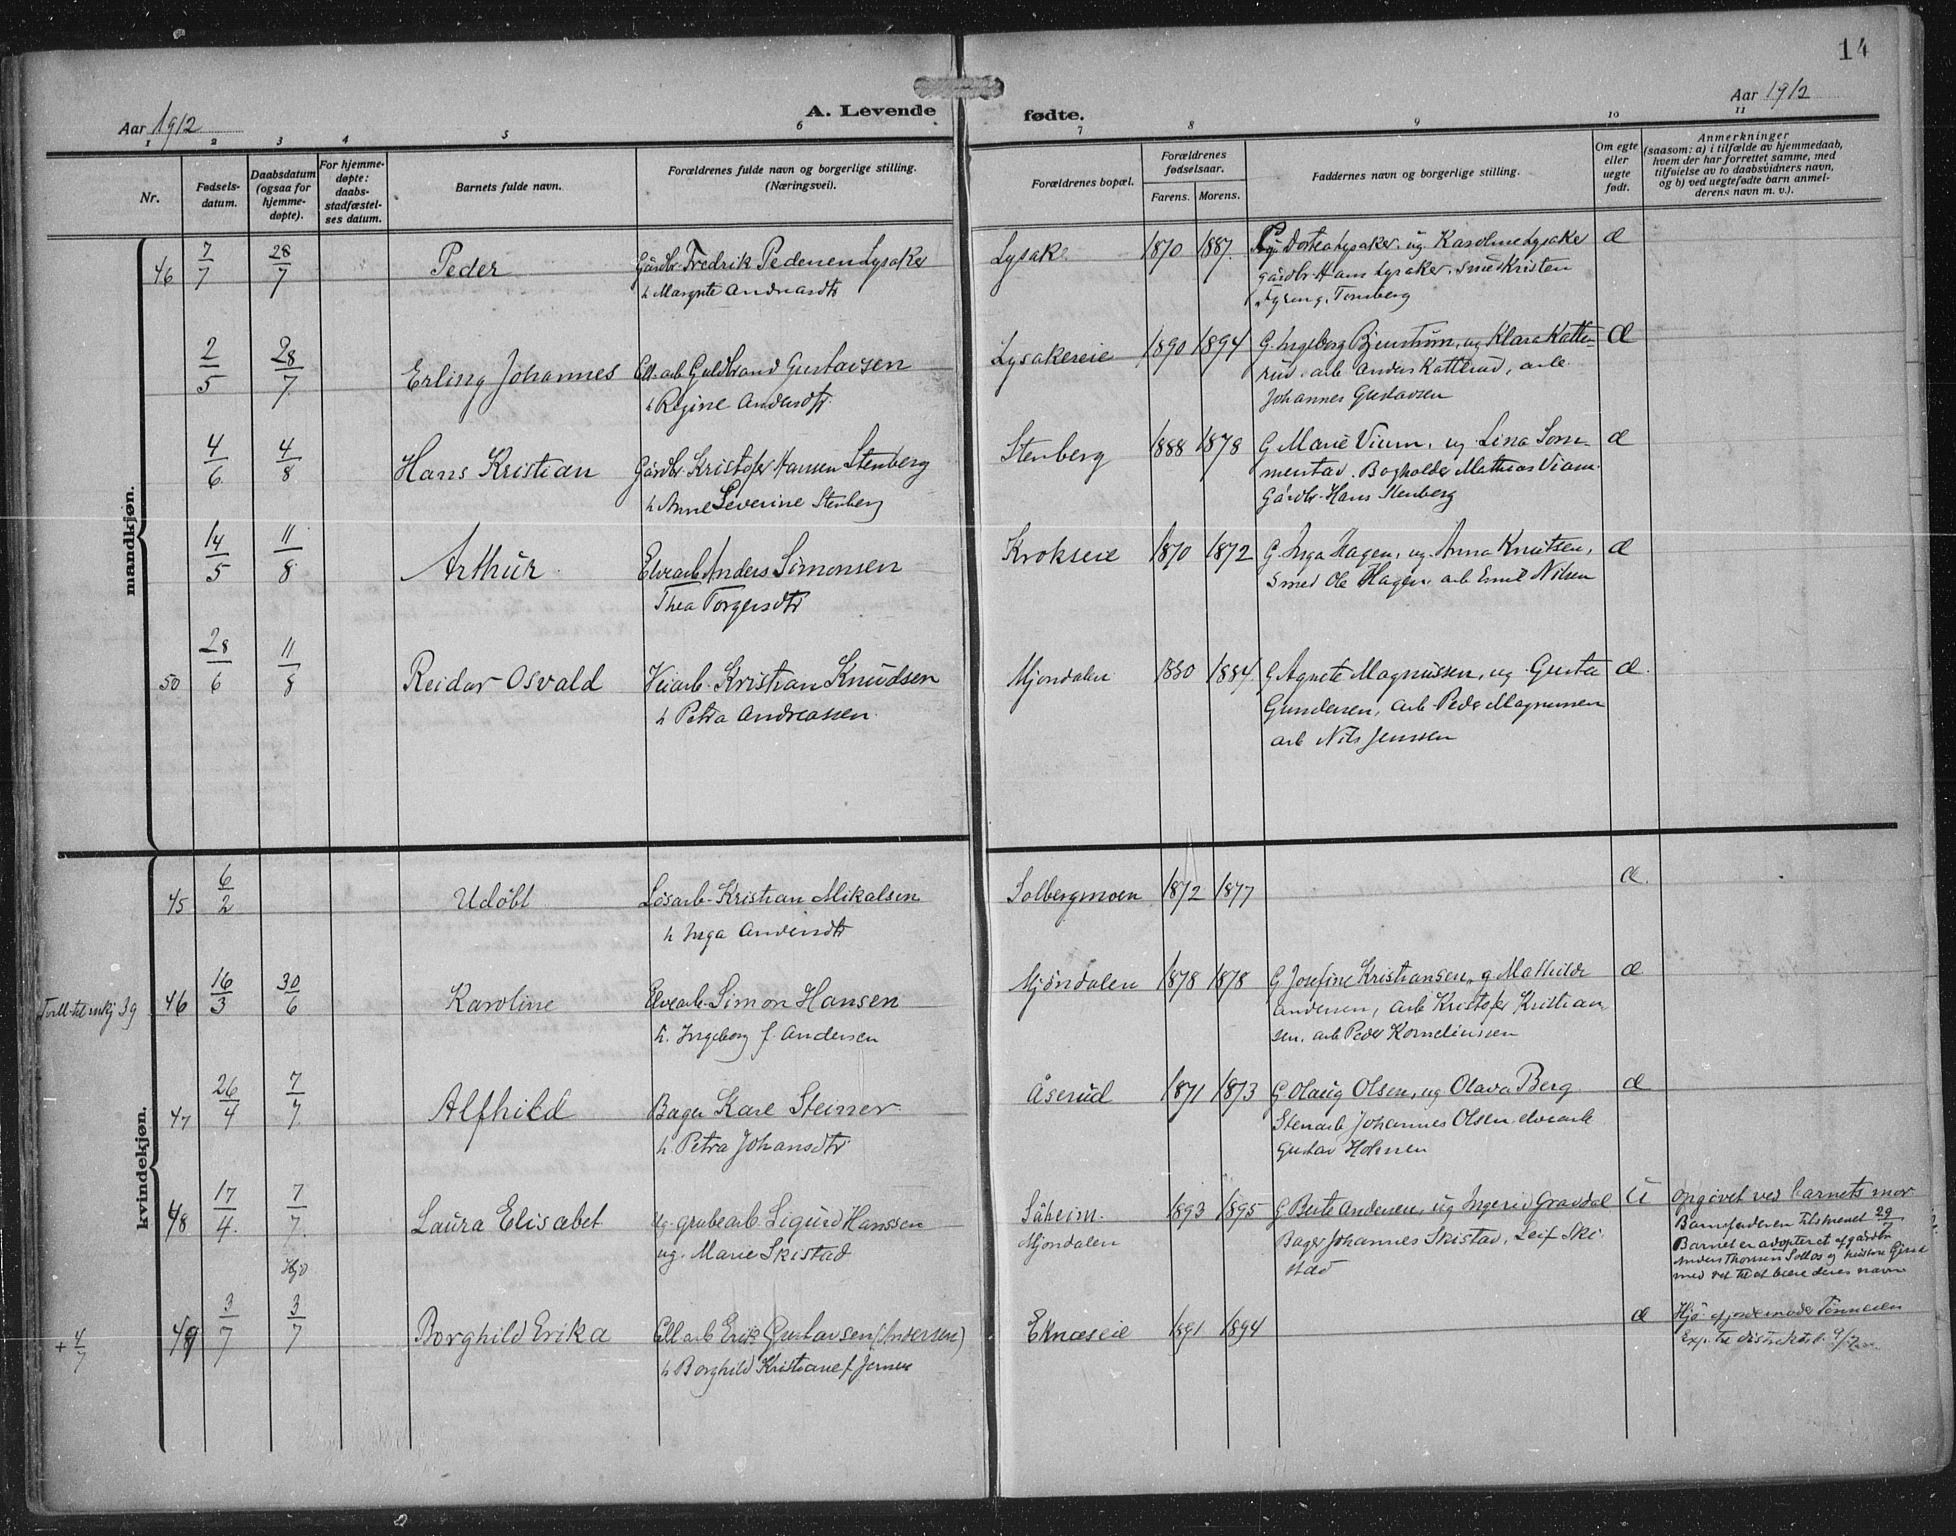 14
Aar 1912
A. Levende fødte.
Aar 1912
1 2 3 4 5 6 7 8 9 10 11
Nr.
Fødsels-
datum.
Daabsdatum
(ogsaa for
hjemme-
døpte).
For hjemme-
døpte:
daabs-
stadfæstel-
ses datum.
Barnets fulde navn.
Forældrenes fulde navn og borgerlige stilling.
(Næringsvei).
Forældrenes bopæl.
Forældrenes
fødselsaar.
Farens. Morens.
Faddernes navn og borgerlige stilling.
Om egte
eller
uegte
født.
Anmerkninger
(saasom: a) i tilfælde av hjemmedaab,
hvem der har forrettet samme, med
tilføielse av to daabsvidners navn,
og b) ved uegtefødte barn anmel-
derens navn m. v.).
mandkjøn.
46 7/7 28/7 Peder Gårdbr. Fredrik Pedersen Lysaker
h. Margrete Andreasdtr
Lysake 1870 1887. Dortea Lysaker, ug. Karoline Lysaker æ
gårdbr. Hans Lysaker. smed Kristen
2/5 28/7 Erling Johannes Cell. arb. Guldbrand Gustavsen
h. Regine Andersdtr.
Lysakereie 1890 1894 G. Ingeborg ug Klara Katte- æ
rud. arb Anders Katterud, arb.
Johannes Gustavsen
4/6 4/8 Hans Kristian Gårdbr. Kristofer Hansen Stenberg
h. Anne Severine Stenberg
Stenberg 1888 1878 G. Marie Viam, ug Lina Som- æ
merstad. Bogholder Mathias Viam.
Gårdbr. Hans Stenberg
14/5 11/8 Arthur Elvearb Anders Simonsen
Thea Torgersdtr
Krokseie 1870 1872 G. Inga Hagen, ug. Anna Knutsen, æ
smed Ole Hagen, arb Emil Nilsen
50 28/6 11/8 Reidar Osvald Veiarb. Kristian Knudsen
h Petra Andreassen.
Mjøndalen 1880 1884 G Agnete Magnussen, ug Gusta æ
Gundersen, arb Peder Magnussen
arb Nils Jenssen
kvindekjøn.
45 6/2 Udøbt Løsarb. Kristian Mikalsen
h Inga Andersdtr
Solbergmoen 1872 1877 æ.
Tvill. til mkj 39 46 16/3 30/6 Karoline Elvearb. Simon Hansen
h. Ingeborg f. Andersen
Mjöndalen 1878 1878 G Josefine Kristiansen, g Mathilde æ
Andersen, arb Kristofer Kristian-
sen. arb Peder Korneliussen
47 26/4 7/7 Alfhild Bager Karl Steiner
h. Petra Johansdtr
Åserud 1871 1873 G Olaug Olsen, ug Olava Berg æ
Stenarb Johannes Olsen elvearb
Gustav Holmen
48 17/4. 7/7 Laura Elisabet Ug. grubearb. Sigurd Hanssen
ug. Marie Skistad
Såheim. 1893 1895 G Berte Andersen, ug Ingerid Gravdal U Opgivet ved barnets mor
Mjøndalen Bager Johannes Skistad, Leif Ski-
stad
Barnefaderen tilstævnet 29/7
Barnet er adopteret af gårdbr
Anders Thorsen
med ret til at bære deres navn
+ 4/7 49 3/7 Hjd 3/7 Borghild Erika Cell arb Erik Gustavsen (Andersen)
h Borghild Kristiane f. Jensen
Eknæseie 1891 1894 æ Hjd. af jordemoder Tønnesen
Exp. til distriktsl. 9/7